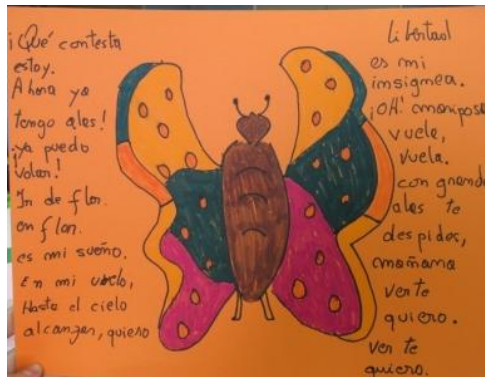 ¡Qué contesta
estoy.
Ahora ya
tengo alas!
¡ya puedo
volar!
In de flor
en flor.
es mi sueño.
En mi vuelo,
Hasta el cielo
alcanzar, quiero
Libertad
es mi
insignea.
¡OH! mariposa
vuela,
vuela.
con grande
alas te
despides,
mañana
verte
quiero.
ver te
quiero.